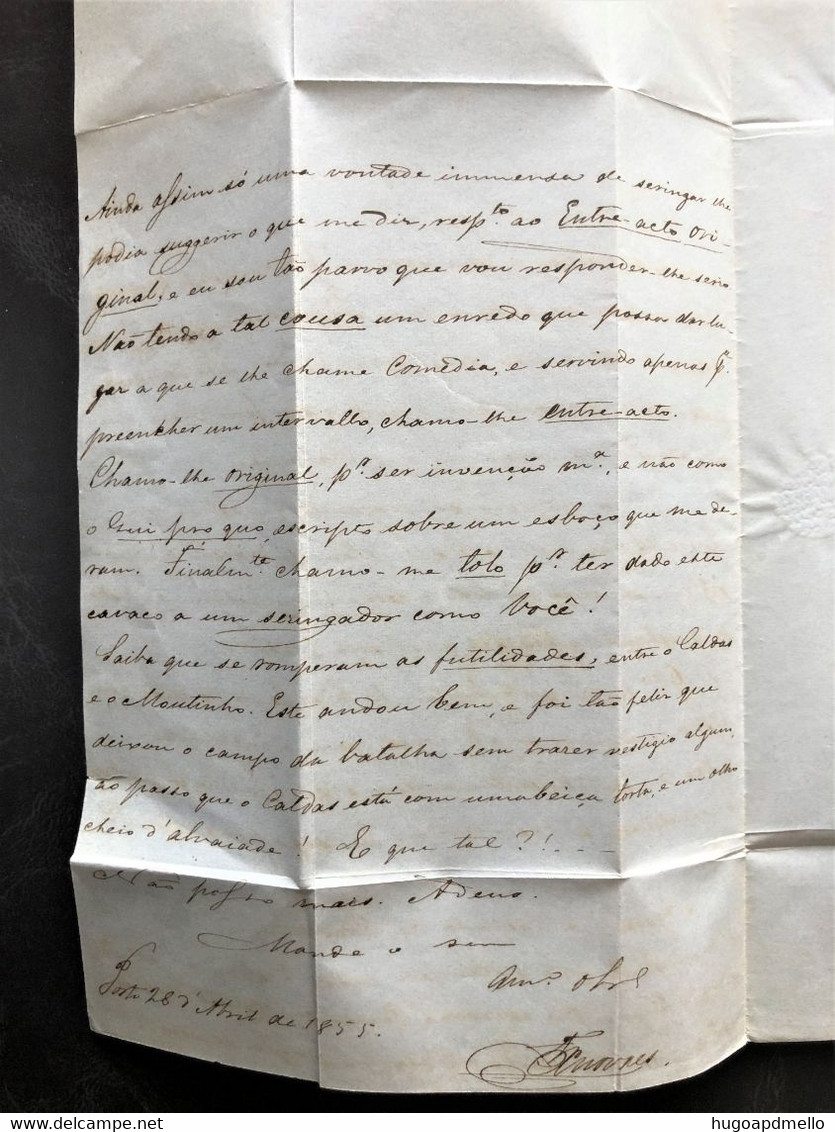 Ainda assim só uma vontade immensa de seringar-lhe
podia suggerir o que me diz, resp.to ao Entre-acto ori-
ginal, e eu sou tão parvo que vou responder-lhe serio
Não tendo a tal cousa um enredo que possa dar lu-
gar a que se lhe chame Comedia, e servindo apenas p.ª
preencher um intervallo, chamo-lhe entre-acto.
Chamo-lhe original, p.r ser invenção m.ª, e não como
o Qui pro quo, escripto sobre um esboço que me de-
ram. Finalm.te chamo-me tolo p.r ter dado este
cavaco a um seringador como Você!
Saiba que se romperam as futilidades, entre o Caldas
e o Moutinho. Este andou bem, e foi tão feliz que
deixou o campo da batalha sem trazer vestigio algum,
ao passo que o Caldas está com uma beiça torta, e um olho
cheio d'alvaiade! E que tal?!...
Não posso mais. Adeus.
Mande o seu
Am.o obr
Porto 28 d'Abril de 1855.
Novaes.
hugoapdmello